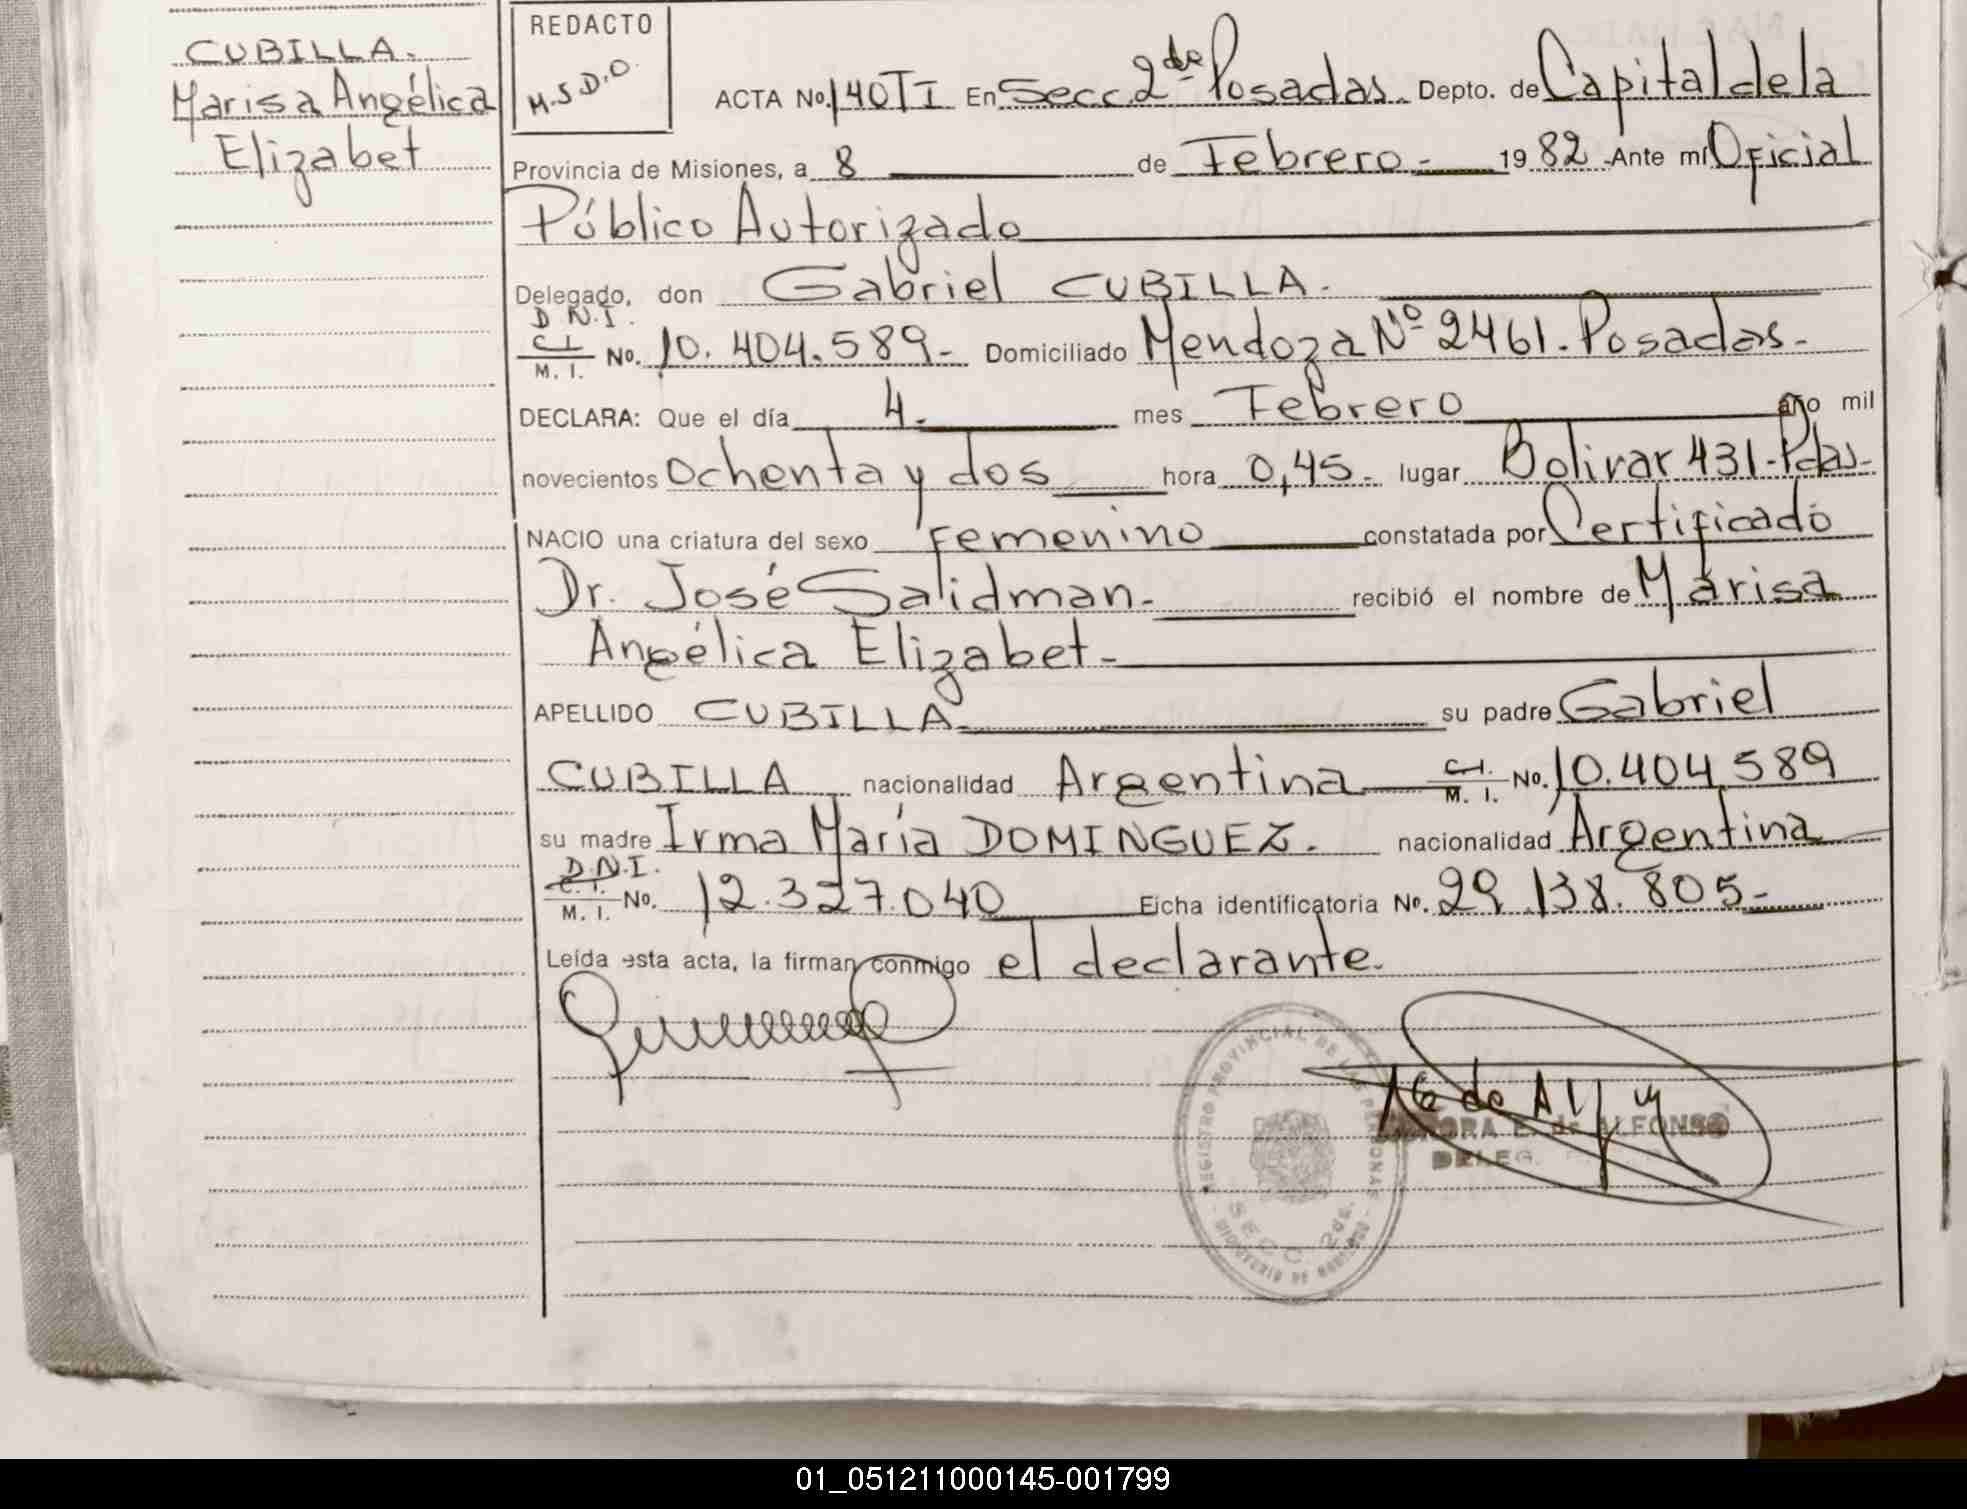 CUBILLA.
Marisa Angélica
Elizabet
REDACTO
M.S.D.O.
ACTA No. 140 TI En Secc. 2da Posadas. Depto. de Capital de la
Provincia de Misiones, a 8 de Febrero.- 1982.-Ante mí Oficial
Público Autorizado
Delegado, don Gabriel CUBILLA.
D.N.I.
C.I.
M. I. No. 10.404.589.- Domiciliado Mendoza Nº 2461.-Posadas.-
DECLARA: Que el día 4.- mes Febrero año mil
novecientos ochenta y dos hora 0,45.- lugar Bolivar 431-Pdas.-
NACIO una criatura del sexo Femenino constatada por Certificado
Dr. José Salidman.- recibió el nombre de Marisa
Angélica Elizabet.-
APELLIDO CUBILLA su padre Gabriel
CUBILLA nacionalidad Argentina C.I. M. I. No. 10.404.589
su madre Irma María DOMINGUEZ. nacionalidad Argentina
D.N.I.
C. I.
M. I. No. 12.327.040 Ficha identificatoria No. 29.138.805.-
Leída esta acta, la firman conmigo el declarante.
REGISTRO PROVINCIAL DE LAS PERSONAS
SECC. 2da.
E. de ALFONSO
DELEG.
01_051211000145-001799